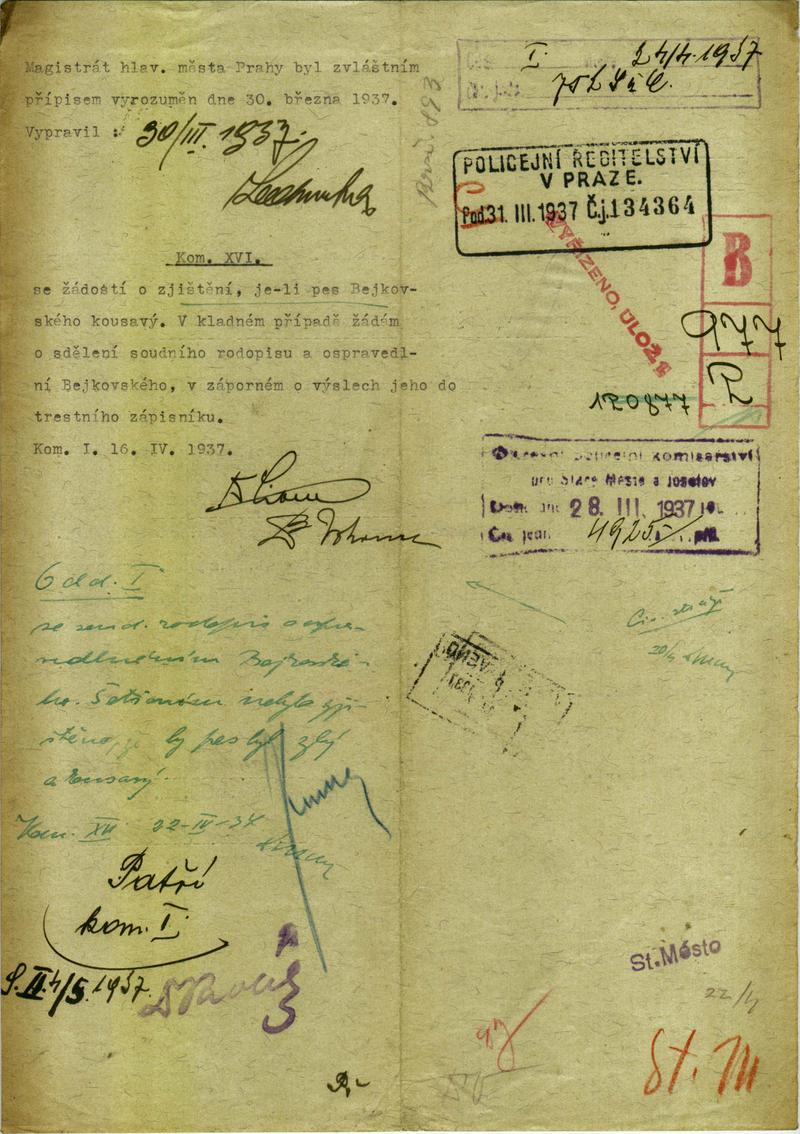 Magistrát hlav. města Prahy byl zvláštním
přípisem vyrozuměn dne 30. března 1937.
Vypravil : 30/III. 1937.
Kom. XVI.
se žádostí o zjištění, je-li pes Bejkov-
ského kousavý. V kladném případě žádám
o sdělení soudního rodopisu a ospravedl-
ní Bejkovského, v záporném o výslech jeho do
trestního zápisníku.
Kom. I. 16. IV. 1937.
Odd. I
se soud. rodopis a ospra-
vedlněním Bejkovské-
ho. Šetřením nebylo zji-
štěno, že by pes byl zlý
a kousavý.
22-IV-37
Patří
kom. I.
4/5. 1937.
I. 24/4. 1937
POLICEJNÍ ŘEDITELSTVÍ
V PRAZE.
Pod. 31. III. 1937 Č.j. 134364
VYŘÍZENO, ULOŽ!
B
977
120877
Okresní policejní komisařství
pro Staré Město a Josefov
28. III. 1937
Čís. jedn. 4925 příl.
St. Město
22/4
St. M